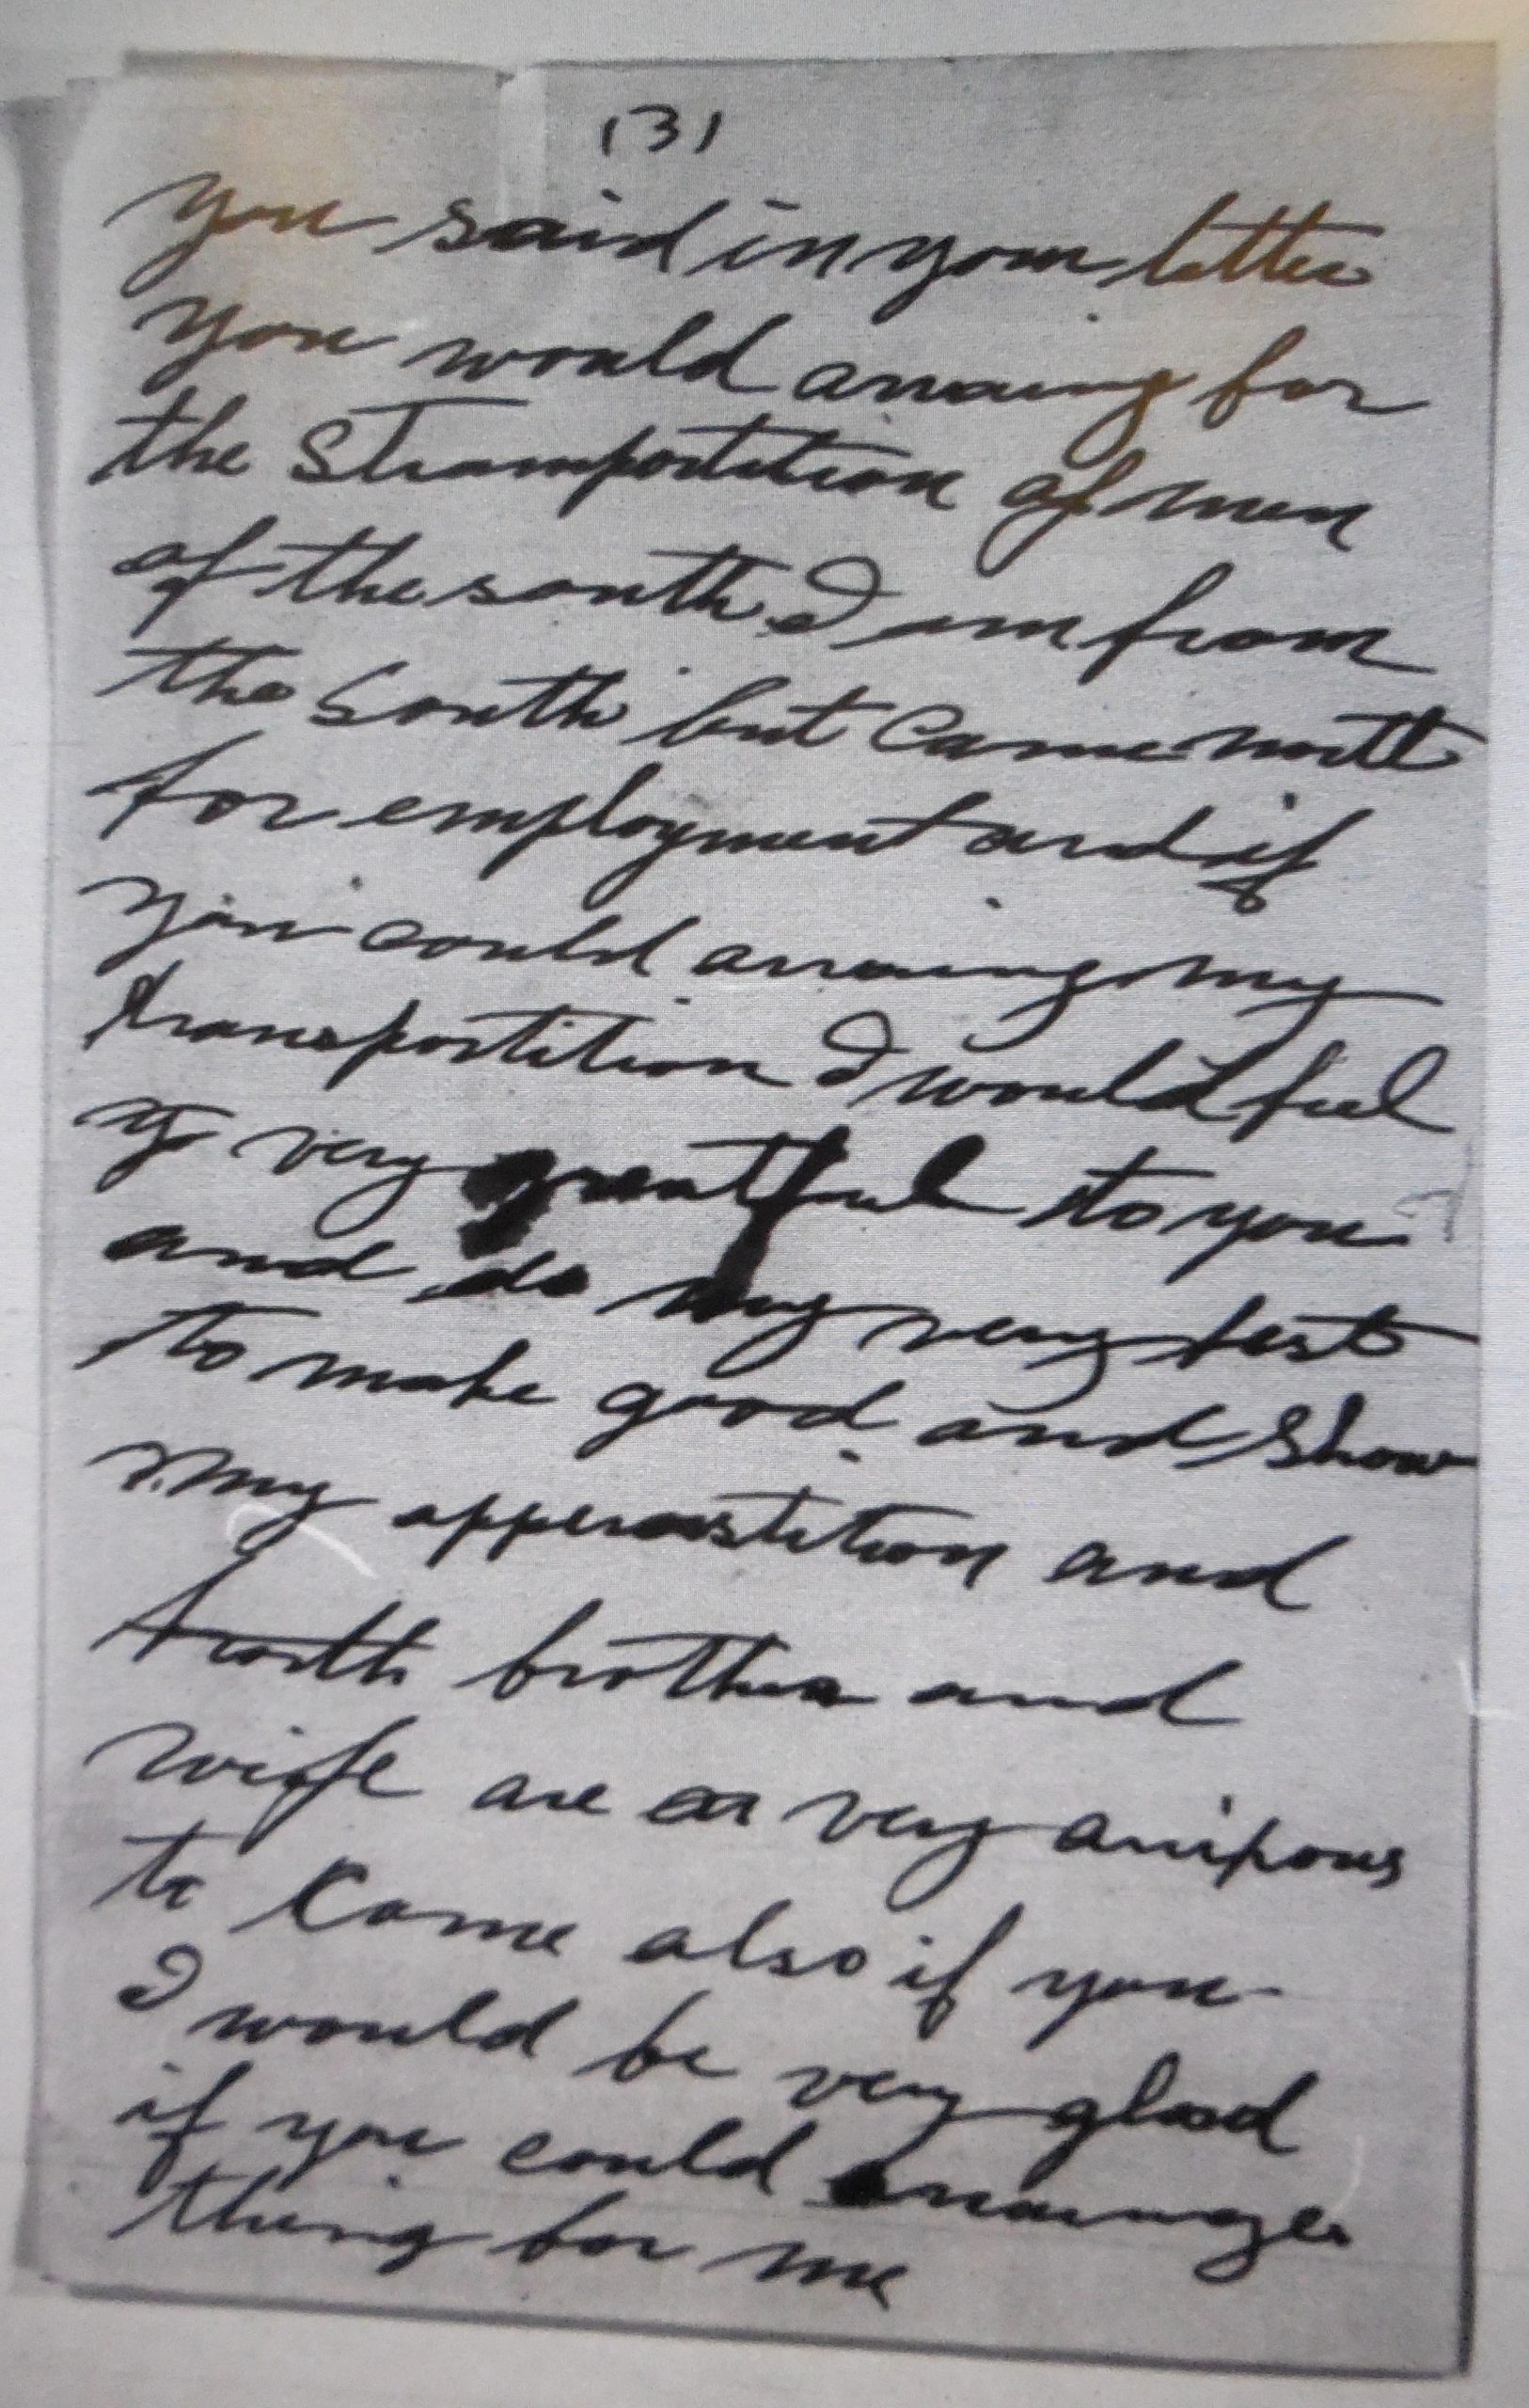 (3)
you said in your letter
you would arraing for
the Stransportition of men
of the south I am from
the South but Came north
for employment and if
you could arraing my
transportition I would feel
very greatful to you
and do my very best
to make good and Show
my apperastition and
brother and
wife are very anixous
to Come also if you
I would be very glad
if you could arrainge
thing for me